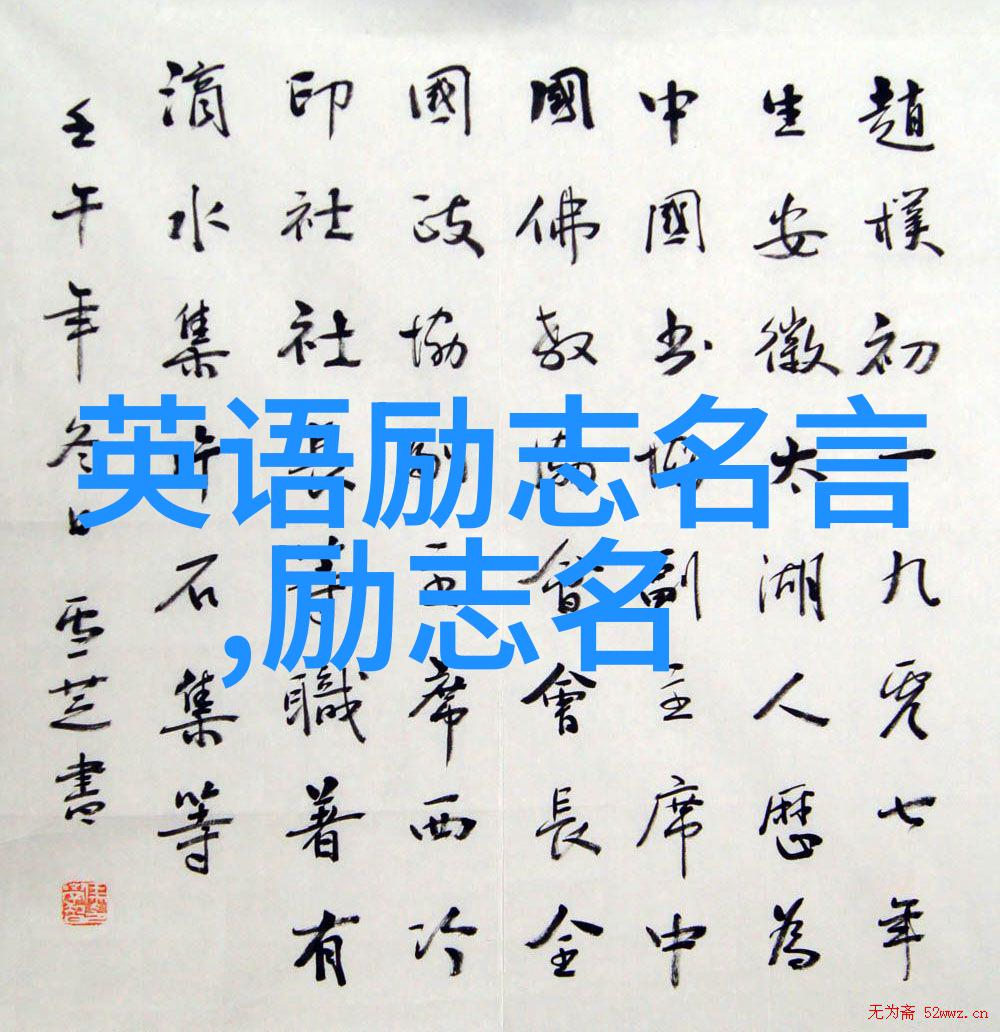 趙樸初一九零七年
生安徽太湖人歷為
中國书協副主席中
國佛教協會會長全
國政協副主席西冷
印社社長等職著有
滴水集片石集等
壬午年冬日雪芝書
英语励志名言
,励志名
无为斋 52wwz.cn